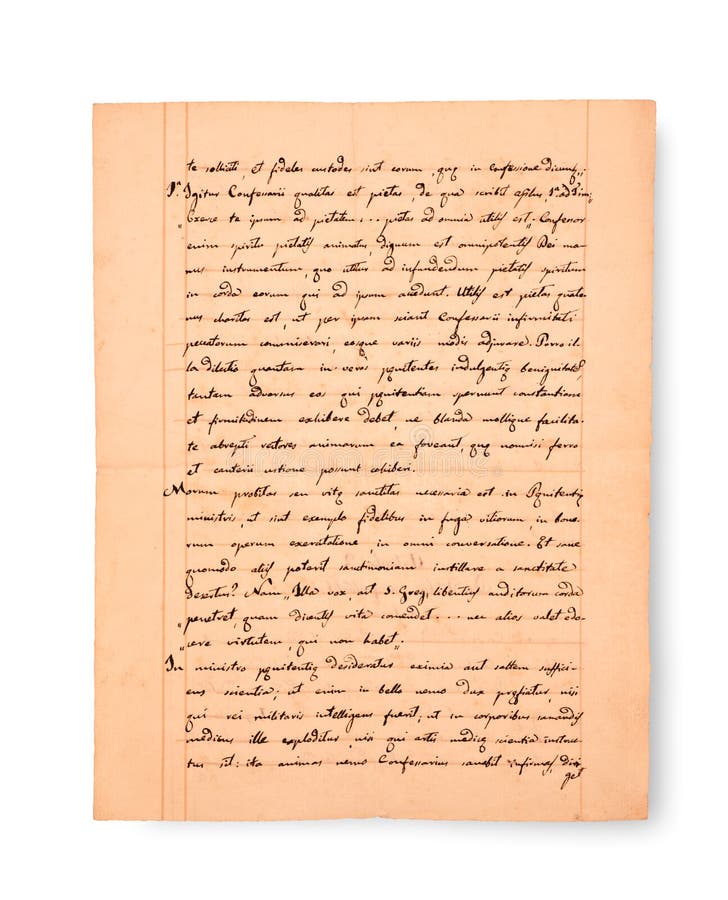 te solliciti, et fideles custodes sint eorum, quę in Confessione
I.ª Igitur Confessarii qualitas est pietas, de qua scribit Aplus. I.ª ad Tim:
„Exerce te ipsum ad pietatem: ... pietas ad omnia utilis est„ Confessor
enim spiritu pietatis animatus, dignum est omnipotentis Dei ma-
nus instrumentum, quo utitur ad infundendum pietatis spiritum
in corda eorum qui ad ipsum audunt. Utilis est pietas quate-
nus charitas est, ut per ipsam sciant Confessarii infirmitati
peccatorum commiserari, eosque variis modis adjuvare. Porro il-
la dilectio quantam in veros pęnitentes indulgentię benignitate,
tantam adversus eos qui pęnitentiam spernunt constantiam
et firmitudinem exhibere debet, ne blanda mollique facilita-
te abrepti rectores animarum ea foveant, quę nonnisi ferro
et cauterii ustione possunt cohiberi.
Morum probitas seu vitę sanctitas necessaria est in Pęnitentię
ministris, ut sint exemplo fidelibus in fuga vitiorum, in bono-
rum operum exercitatione, in omni conversatione. Et sane
quomodo aliis poterit sanctimoniam instillare a sanctitate
desertus? Nam „Illa vox, ait S. Greg, libentius auditorum corda
„penetret, quam dicentis vita comendet ... nec alios valet edo-
„cere virtutem, qui non habet„
In ministro pęnitentię desideratur eximia aut saltem suffici-
ens scientia; ut enim in bello nemo dux pręfiatur, nisi
qui rei militaris intelligens fuerit; ut in corporibus sanandis
medicus ille exploditur, nisi qui artis medicę scientia instruc-
tus sit: ita animas nemo Confessarius sanabit infirmas, diri-
get